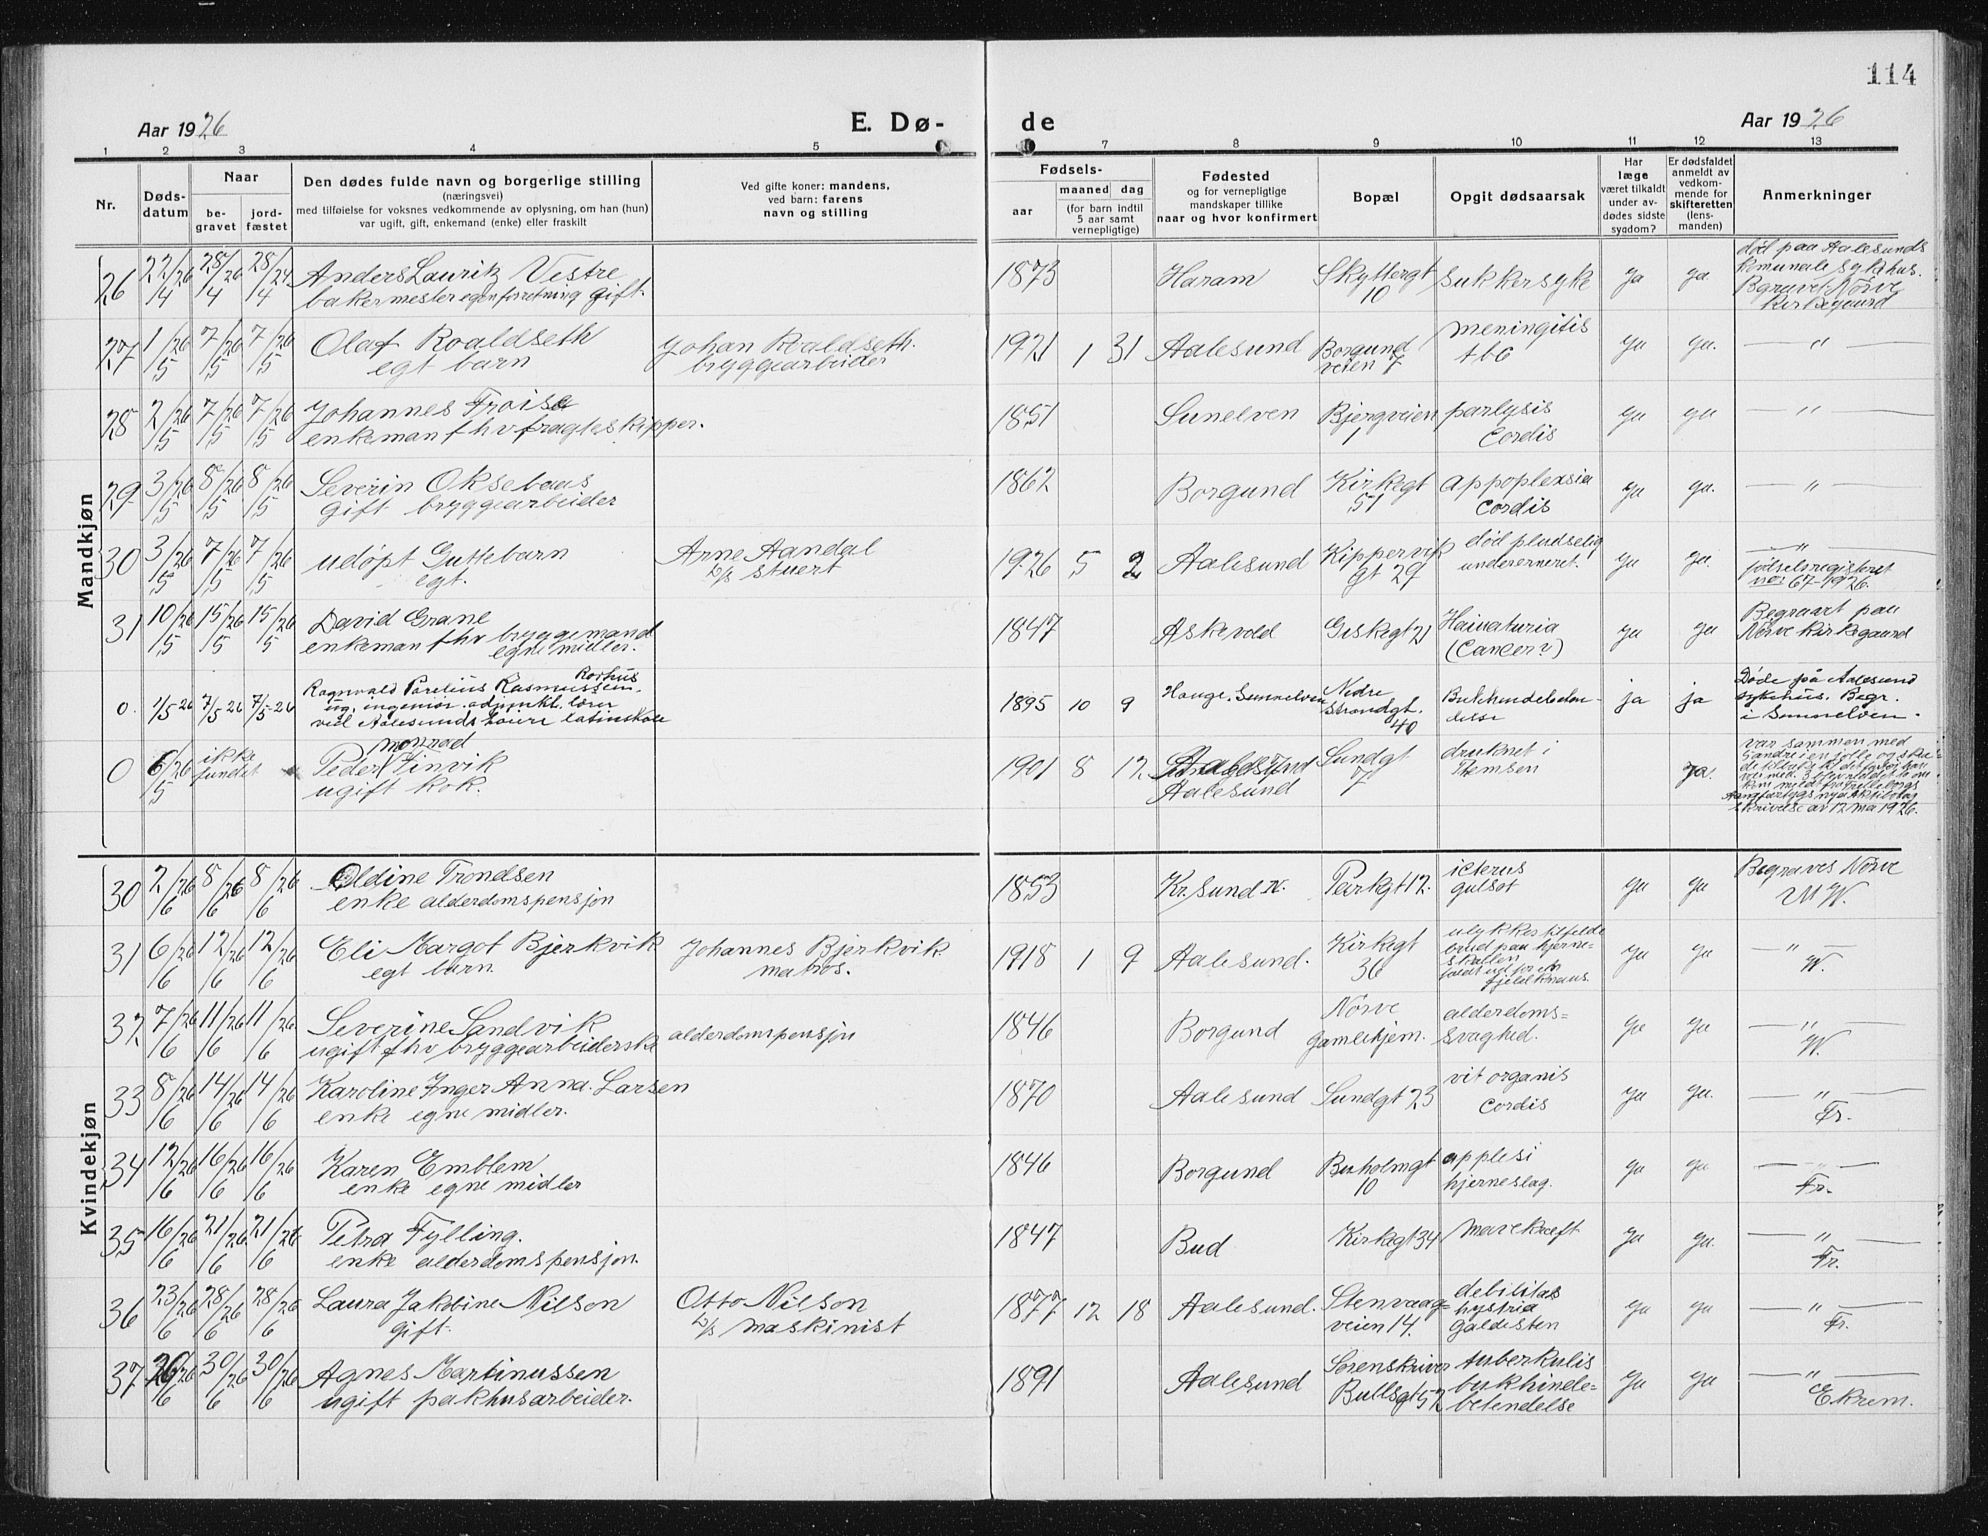 114
Aar 1926 E. Dø- de Aar 1926
1 2 3 4 5 7 8 9 10 11 12 13
Nr.
Døds-
datum
Naar
be-
gravet
jord-
fæstet
Den dødes fulde navn og borgerlige stilling
(næringsvei)
med tilføielse for voksnes vedkommende av oplysning, om han (hun)
var ugift, gift, enkemand (enke) eller fraskilt
Ved gifte koner: mandens,
ved barn: farens
navn og stilling
Fødsels-
aar
maaned dag
(for barn indtil
5 aar samt
vernepligtige)
Fødested
og for vernepligtige
mandskaper tillike
naar og hvor konfirmert
Bopæl
Opgit dødsaarsak
Har
læge
været tilkaldt
under av-
dødes sidste
sygdom?
Er dødsfaldet
anmeldt av
vedkom-
mende for
skifteretten
(lens-
manden)
Anmerkninger
Mandkjøn
26 22/4 26 28/4 26 28/4 24 Anders Lauritz Vestre 1873 Haram Skyttergt sukkersyke ja ja død paa Aalesunds
bakermester egen forretning gift. 10 komunale sykehus.
Begravet Nørve
kirkegaard
27 1/5 26 7/5 26 7/5 26 Olaf Roaldseth Johan Roaldseth. 1921 1 31 Aalesund Borgund meningitis ja ja. — " —
egt barn bryggearbeider veien 7 tbc
28 2/5 26 7/5 26 7/5 26 Johannes Frøisa 1851 Sunelven Bjergveien parlysis ja ja — " —
enkeman fhv fragteskipper. 1 Cordis
29 3/5 26 8/5 26 8/5 26 Severin Oksebaas 1862 Borgund Kirkegt appoplexsia ja ja. — " —
gift bryggearbeider 51 Cordis
30 3/5 26 7/5 26 7/5 26 udøpt Guttebarn Arne Aandal 1926 5 2 Aalesund Kippervik død pludselig ja ja. — " —
egt. D/S stuert gt 27 undererneret. føtselsregisteret
nr 67-1926.
31 10/5 26 15/5 26 15/5 26 David Grane 1847 Askevold Giskegt 21 Haimaturia ja ja Begravet paa
enkeman fhv bryggemand (Cancer?) Nørve kirkegaard
egne midler.
0. 1/5 26 7/5 26 7/5 26 Ragnvald Parelius Rasmussen 1895 10 9 Hauge, Sunnelven Nedre Bukhindebeten- ja ja Døde på Aalesund
ug. ingeniør, adjunkt, lærer Strandgt. delse sykehus. Begr.
ved Aalesunds høiere latinskole 40 i Sunnelven.
0 6/5 26 ikke Peder Monrad Finvik 1901 8 12 Sundgt druknet i ja.
fundet ugift kok. Aalesund 7 Themsen
var sammen med
skrivelse av 12 mai 1926.
Kvindekjøn
30 2/6 26 8/6 26 8/6 26 Oldine Trondsen 1853 Kr.sund N. Parkgt 12. icterus ja ja Begraves Nørve
enke alderdomspensjon gulsot M W.
31 6/6 26 12/6 26 12/6 26 Eli Margot Bjerkvik Johannes Bjerkvik. 1918 1 9 Aalesund. Kirkegt ulykkestilfelde ja ja — " —
egt barn matros. 36 brud paa hjerne- W.
skallen
faldt ud for en
fjeldknaus.
32 7/6 26 11/6 26 11/6 26 Severine Sandvik alderdomspensjon 1846 Borgund Nørve alderdoms= ja ja — " —
ugift fhv bryggearbeiderske gamlehjem. svaghed. W.
33 8/6 26 14/6 26 14/6 26 Karoline Inger Anna. Larsen 1870 Aalesund Sundgt 23 vit organis ja ja. — " —
enke egne midler. Cordis Fr.
34 12/6 26 16/6 26 16/6 26 Karen Emblem 1846 Borgund Buholmgt applesi ja ja — " —
enke egne midler 10 hjerneslag. Fr.
35 16/6 26 21/6 26 21/6 26 Petra Fylling. 1847 Bud Kirkegt 34 Mavekræft ja ja. — " —
enke alderdomspensjon. Fr.
36 23/6 26 28/6 26 28/6 26 Laura Jakobine Nilson Otto Nilson 1877 12 18 Aalesund. Stenvaag= debilitas ja ja — " —
gift. D/S maskinist veien 14. hystria Fr.
galdesten
37 26/6 26 30/6 26 30/6 26 Agnes Martinussen 1891 Aalesund Sorenskriver tuberkulis ja ja — " —
ugift pakhusarbeider. Bullsgt 52 bukhinde= E krem.
betendelse